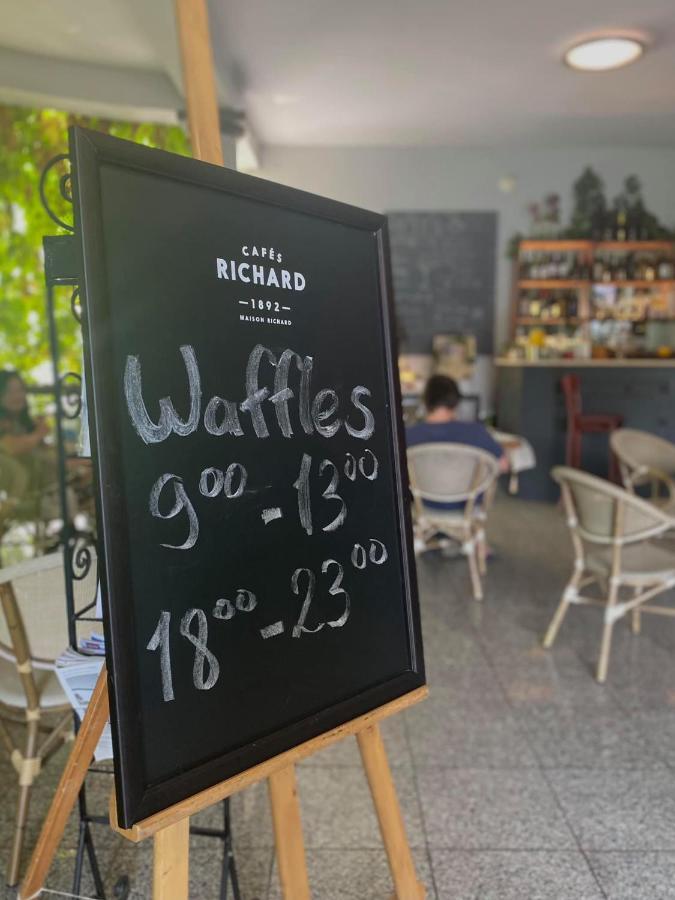 CAFÉS
RICHARD
—1892—
MAISON RICHARD
Waffles
9⁰⁰ - 13⁰⁰
18⁰⁰ - 23⁰⁰